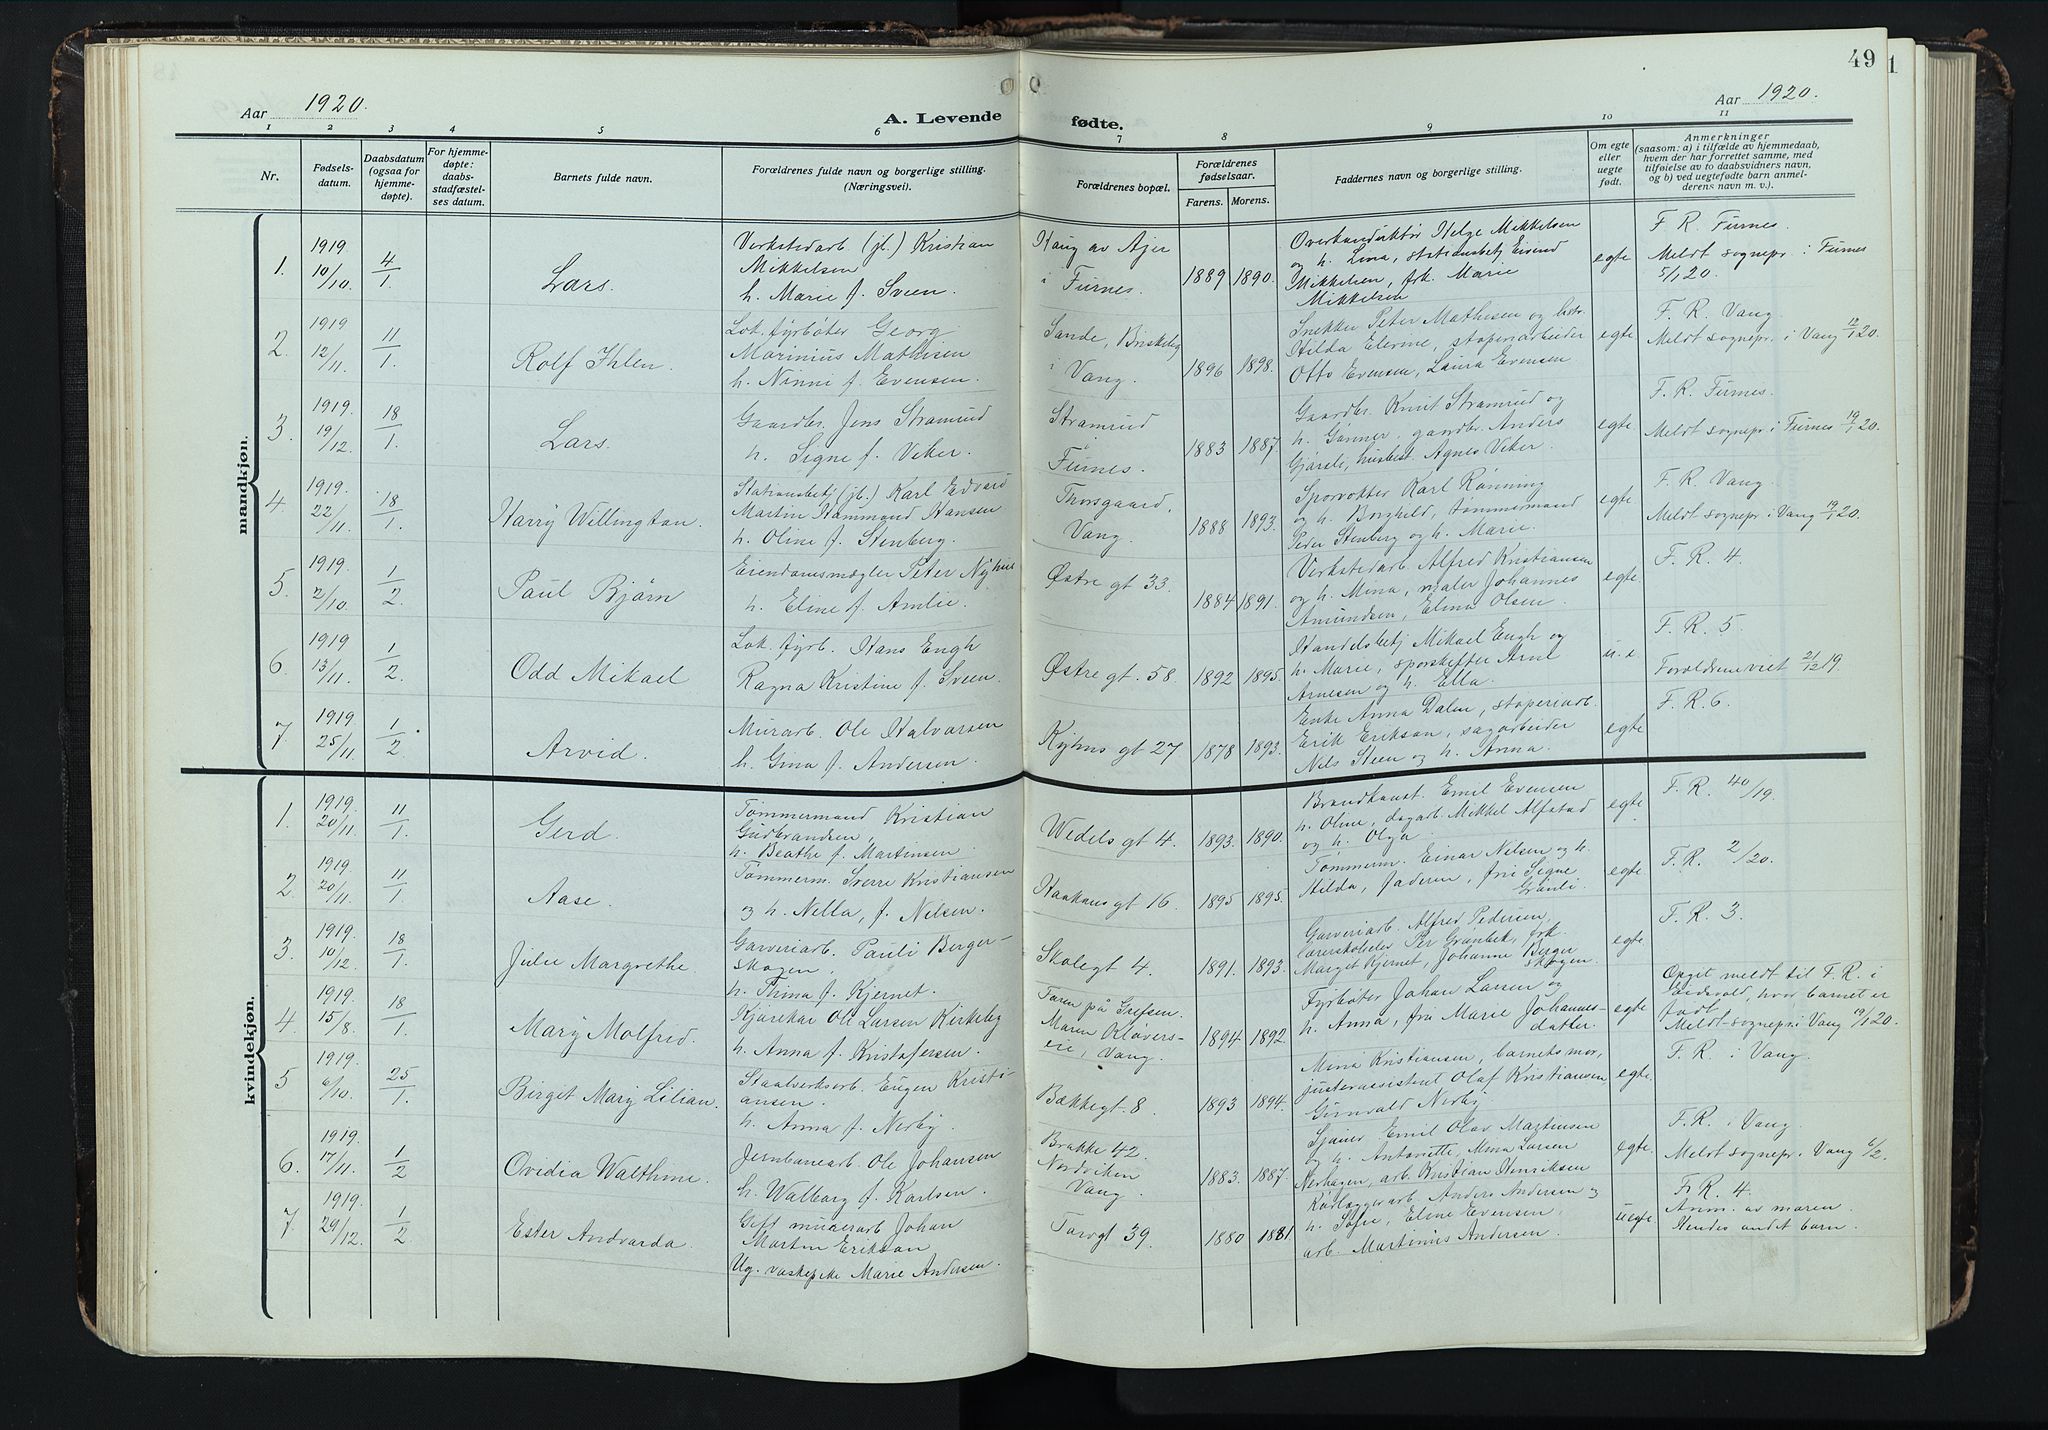 49
1
Aar 1920.
Aar 1920.
A. Levende fødte.
1 2 3 4 5 6 7 8 9 10 11
Nr.
Fødsels-
datum.
Daabsdatum
(ogsaa for
hjemme-
døpte).
For hjemme-
døpte:
daabs-
stadfæstel-
ses datum.
Barnets fulde navn.
Forældrenes fulde navn og borgerlige stilling.
(Næringsvei).
Forældrenes bopæl.
Forældrenes
fødselsaar.
Farens. Morens.
Faddernes navn og borgerlige stilling.
Om egte
eller
uegte
født.
Anmerkninger
(saasom: a) i tilfælde av hjemmedaab,
hvem der har forrettet samme, med
tilføielse av to daabsvidners navn,
og b) ved uegtefødte barn anmel-
derens navn m. v.).
mandkjøn.
1.
1919
10/10.
4/1
Lars.
Verkstedarb (jl.) Kristian
Mikkelsen
h. Marie f. Sveen.
Haug av Ajer
i Furnes.
1889 1890.
Helge Mikkelsen
og h. Lina, stationsbetj Eivind
Mikkelsen, frk. Marie
Mikkelsen
egte
F. R. Furnes.
Meldt sognepr. i Furnes
5/1 20.
2.
1919
12/11.
11/1
Rolf Ihlen.
Lok. fyrbøter Georg
Marinius Mathisen
h. Ninni f. Evensen.
Sande, Briskeby
i Vang.
1896 1898.
Snekker Peter Mathisen og
Hilda Elerine, støperiarbeider
Otto Evensen, Laura Evensen
egte
F. R. Vang.
Meldt sognepr. i Vang 12/1 20.
3.
1919.
19/12.
18/1.
Lars.
Gaardbr. Jens Stramrud
h. Signe f. Veker.
Stramrud
Furnes.
1883 1887.
Gaardbr. Knut Stramrud og
h. Gunner, gaardbr. Anders
Gjøreli, husbest. Agnes Veker.
egte
F. R. Furnes.
Meldt sognepr. i Furnes 19/1 20.
4
1919.
22/11.
18/1.
Harry Willington.
Stationsbetj (jb.) Karl Edvard
Martin Hammond Hansen
h. Oline f. Stenberg.
Thorsgaard,
Vang.
1888 1893.
Sporvokter Karl Rønning
og h. Borghild, tømmermand
Peder Stenberg og h. Marie.
egte
F. R. Vang.
Meldt sognepr i Vang 19/1 20.
5.
1919.
2/10.
1/2.
Paul Bjørn
Eiendomsmægler Peter Nyhus
h. Eline f. Amlie.
Østre gt 33.
1884 1891.
Verkstedarb. Alfred Kristiansen
og h. Mina, maler Johannes
Amundsen, Elina Olsen.
egte.
F. R. 4.
6.
1919
13/11.
1/2.
Odd Mikael
Lok. fyrb. Hans Engh
Ragna Kristine f. Sveen.
Østre gt. 58.
1892 1895.
Handelsbetj Mikael Engh og
h. Marie, sporskifter Arne
Arnesen og h. Ella.
u. e
F. R. 5.
Forældrene viet 21/12 19.
7
1919.
25/11.
1/2.
Arvid.
Murarb. Ole Halvorsen
h. Gina f. Andersen.
Kyhns gt 27
1878 1893.
Enke Anna Dalen, støperiarb.
Erik Erikson, sagarbeider
Nils Steen og h. Anna.
egte
F. R. 6.
kvindekjøn.
1.
1919.
20/11.
11/1.
Gerd.
Tømmermand Kristian
Gudbrandsen,
h. Beathe f. Martinsen.
Wedels gt 4.
1893. 1890.
Emil Evensen
h. Oline, dagarb. Mikkel Alfstad
og h. Olga.
egte.
F. R. 40/19.
2
1919.
20/11.
11/1.
Aase.
Tømmerm. Sverre Kristiansen
og h. Nella, f. Nilsen.
Haakons gt 16.
1895 1895.
Tømmerm. Einar Nilsen og h.
Hilda, Jaderen, fru Signe
Grønli.
egte
F. R. 2/20.
3.
1919.
10/12.
18/1.
Julie Margrethe.
Garveriarb. Pauli Berger-
skogen,
h. Thina f. Kjernet.
Skolegt 4.
1891. 1893.
Garveriarb. Alfred Pedersen,
Per Grønbek, frk.
Marget Kjernet, Johanne Berger
skogen.
egte
F. R. 3.
4.
1919.
15/8.
18/1.
Mary Molfrid.
Kjørekar Ole Larsen Kirkeby
h. Anna f. Kristofersen.
Faren på Grefsen.
Moren Oløvers-
eie, Vang.
1894 1892.
Fyrbøter Johan Larsen og
h. Anna, fru Marie Johannes-
datter.
egte
Opget meldt til F. R. i
Eidsvold, hvor barnet er
født.
Meldt sognepr i Vang 19/1 20.
5
1919.
6/10.
25/1.
Birget Mary Lilian.
Staalverksarb. Eugen Kristi-
ansen.
h. Anna f. Nerby.
Bækkegt 8.
1893 1894.
Mina Kristiansen, barnets mor,
justerassistent Olaf Kristiansen
Gunvald Nerby.
egte.
F. R. i Vang.
6.
1919.
17/11.
1/2
Ovidia Walthine.
Jernbanearb. Ole Johansen
h. Walborg f. Karlsen.
Brakke 42.
Nordviken
Vang.
1883. 1887.
Emil Olav Martinsen
og h. Antonette, Mina Larsen
Nerhagen, arb. Kristian Henriksen
egte.
F. R. i Vang.
Meldt sognepr. i Vang 6/2.
7.
1919.
29/12.
1/2.
Ester Andvarda.
Gift murerarb Johan
Martin Erikson
Ug. vaskepike Marie Andersen.
Torvgt 39.
1880 1881
Rørlæggerarb. Anders Andersen og
h. Sofie, Eline Evensen,
arb. Martinus Andersen.
uegte.
F. R. 4.
Anm. av moren.
Hendes andet barn.